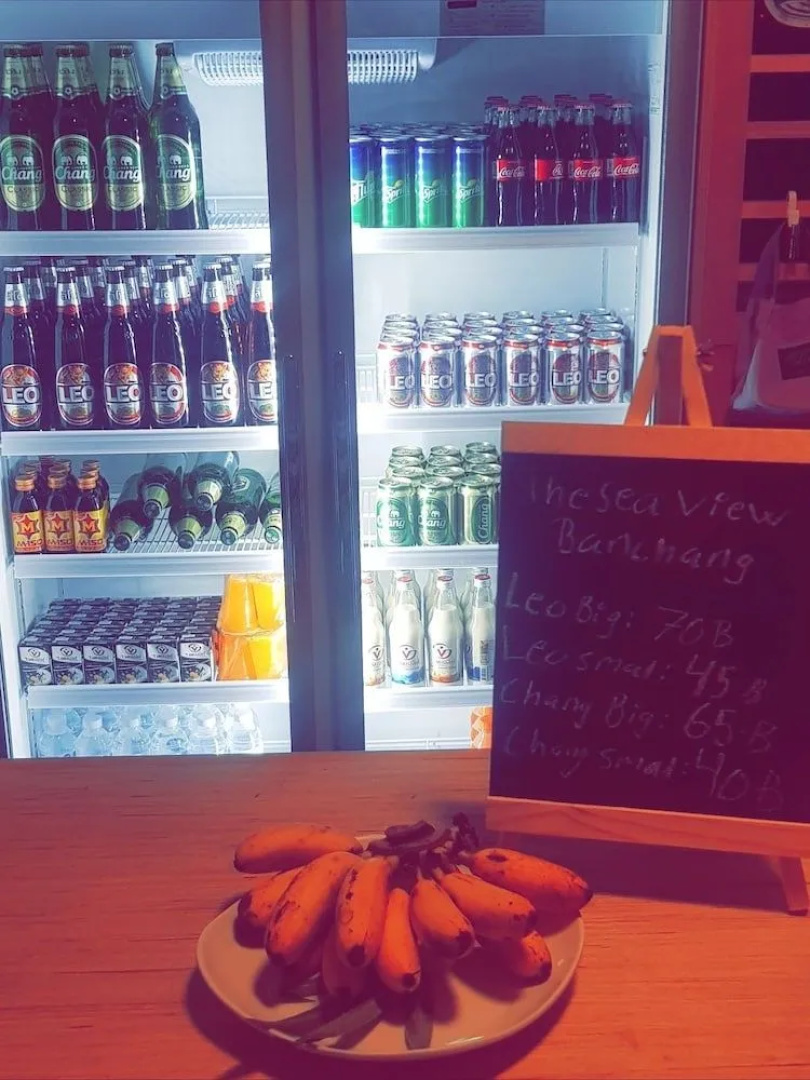 Chang Chang Chang Chang
Sprite Sprite Sprite
Coca-Cola Coca-Cola Coca-Cola Coca-Cola
LEO LEO LEO LEO LEO LEO
LEO LEO LEO LEO LEO LEO
M M M
Chang Chang Chang
The Sea View
Banchang
Leo Big: 70B
Leo smal: 45 B
Chang Big: 65 B
Chang smal: 40 B